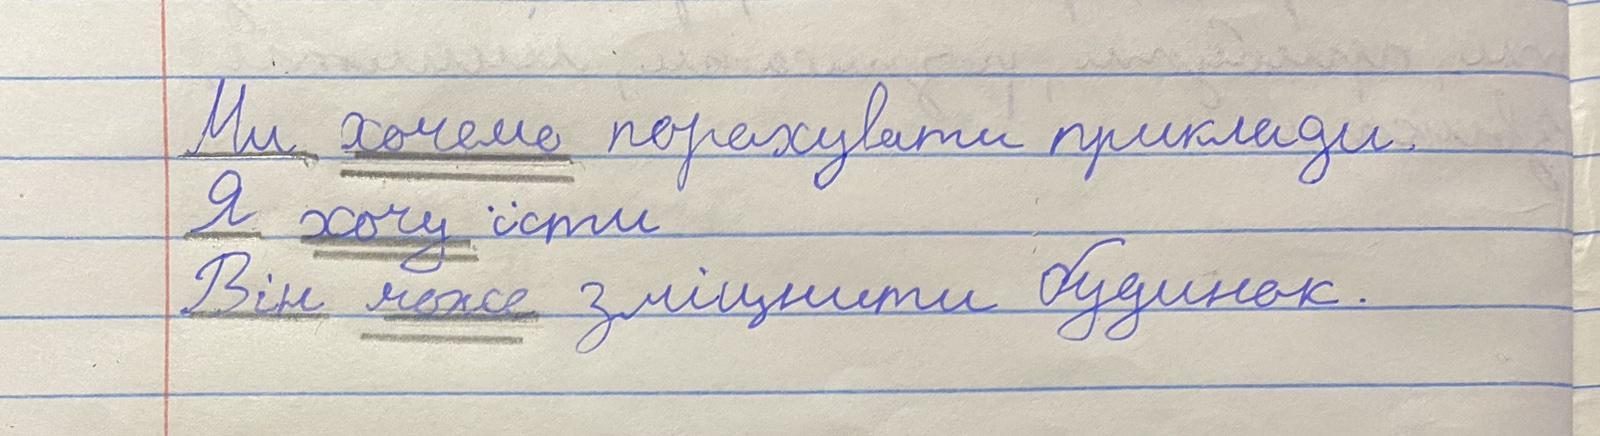 Ми хочемо порахувати приклади.
Я хочу їсти
Він може зміцнити будинок.